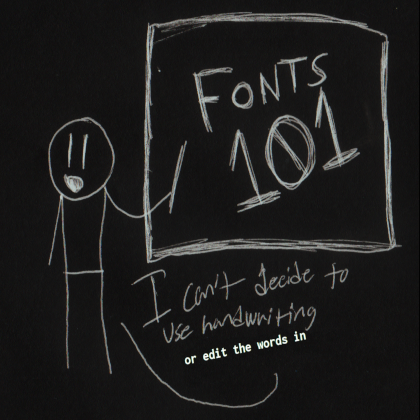 FONTS
101
I can't decide to
use handwriting
or edit the words in